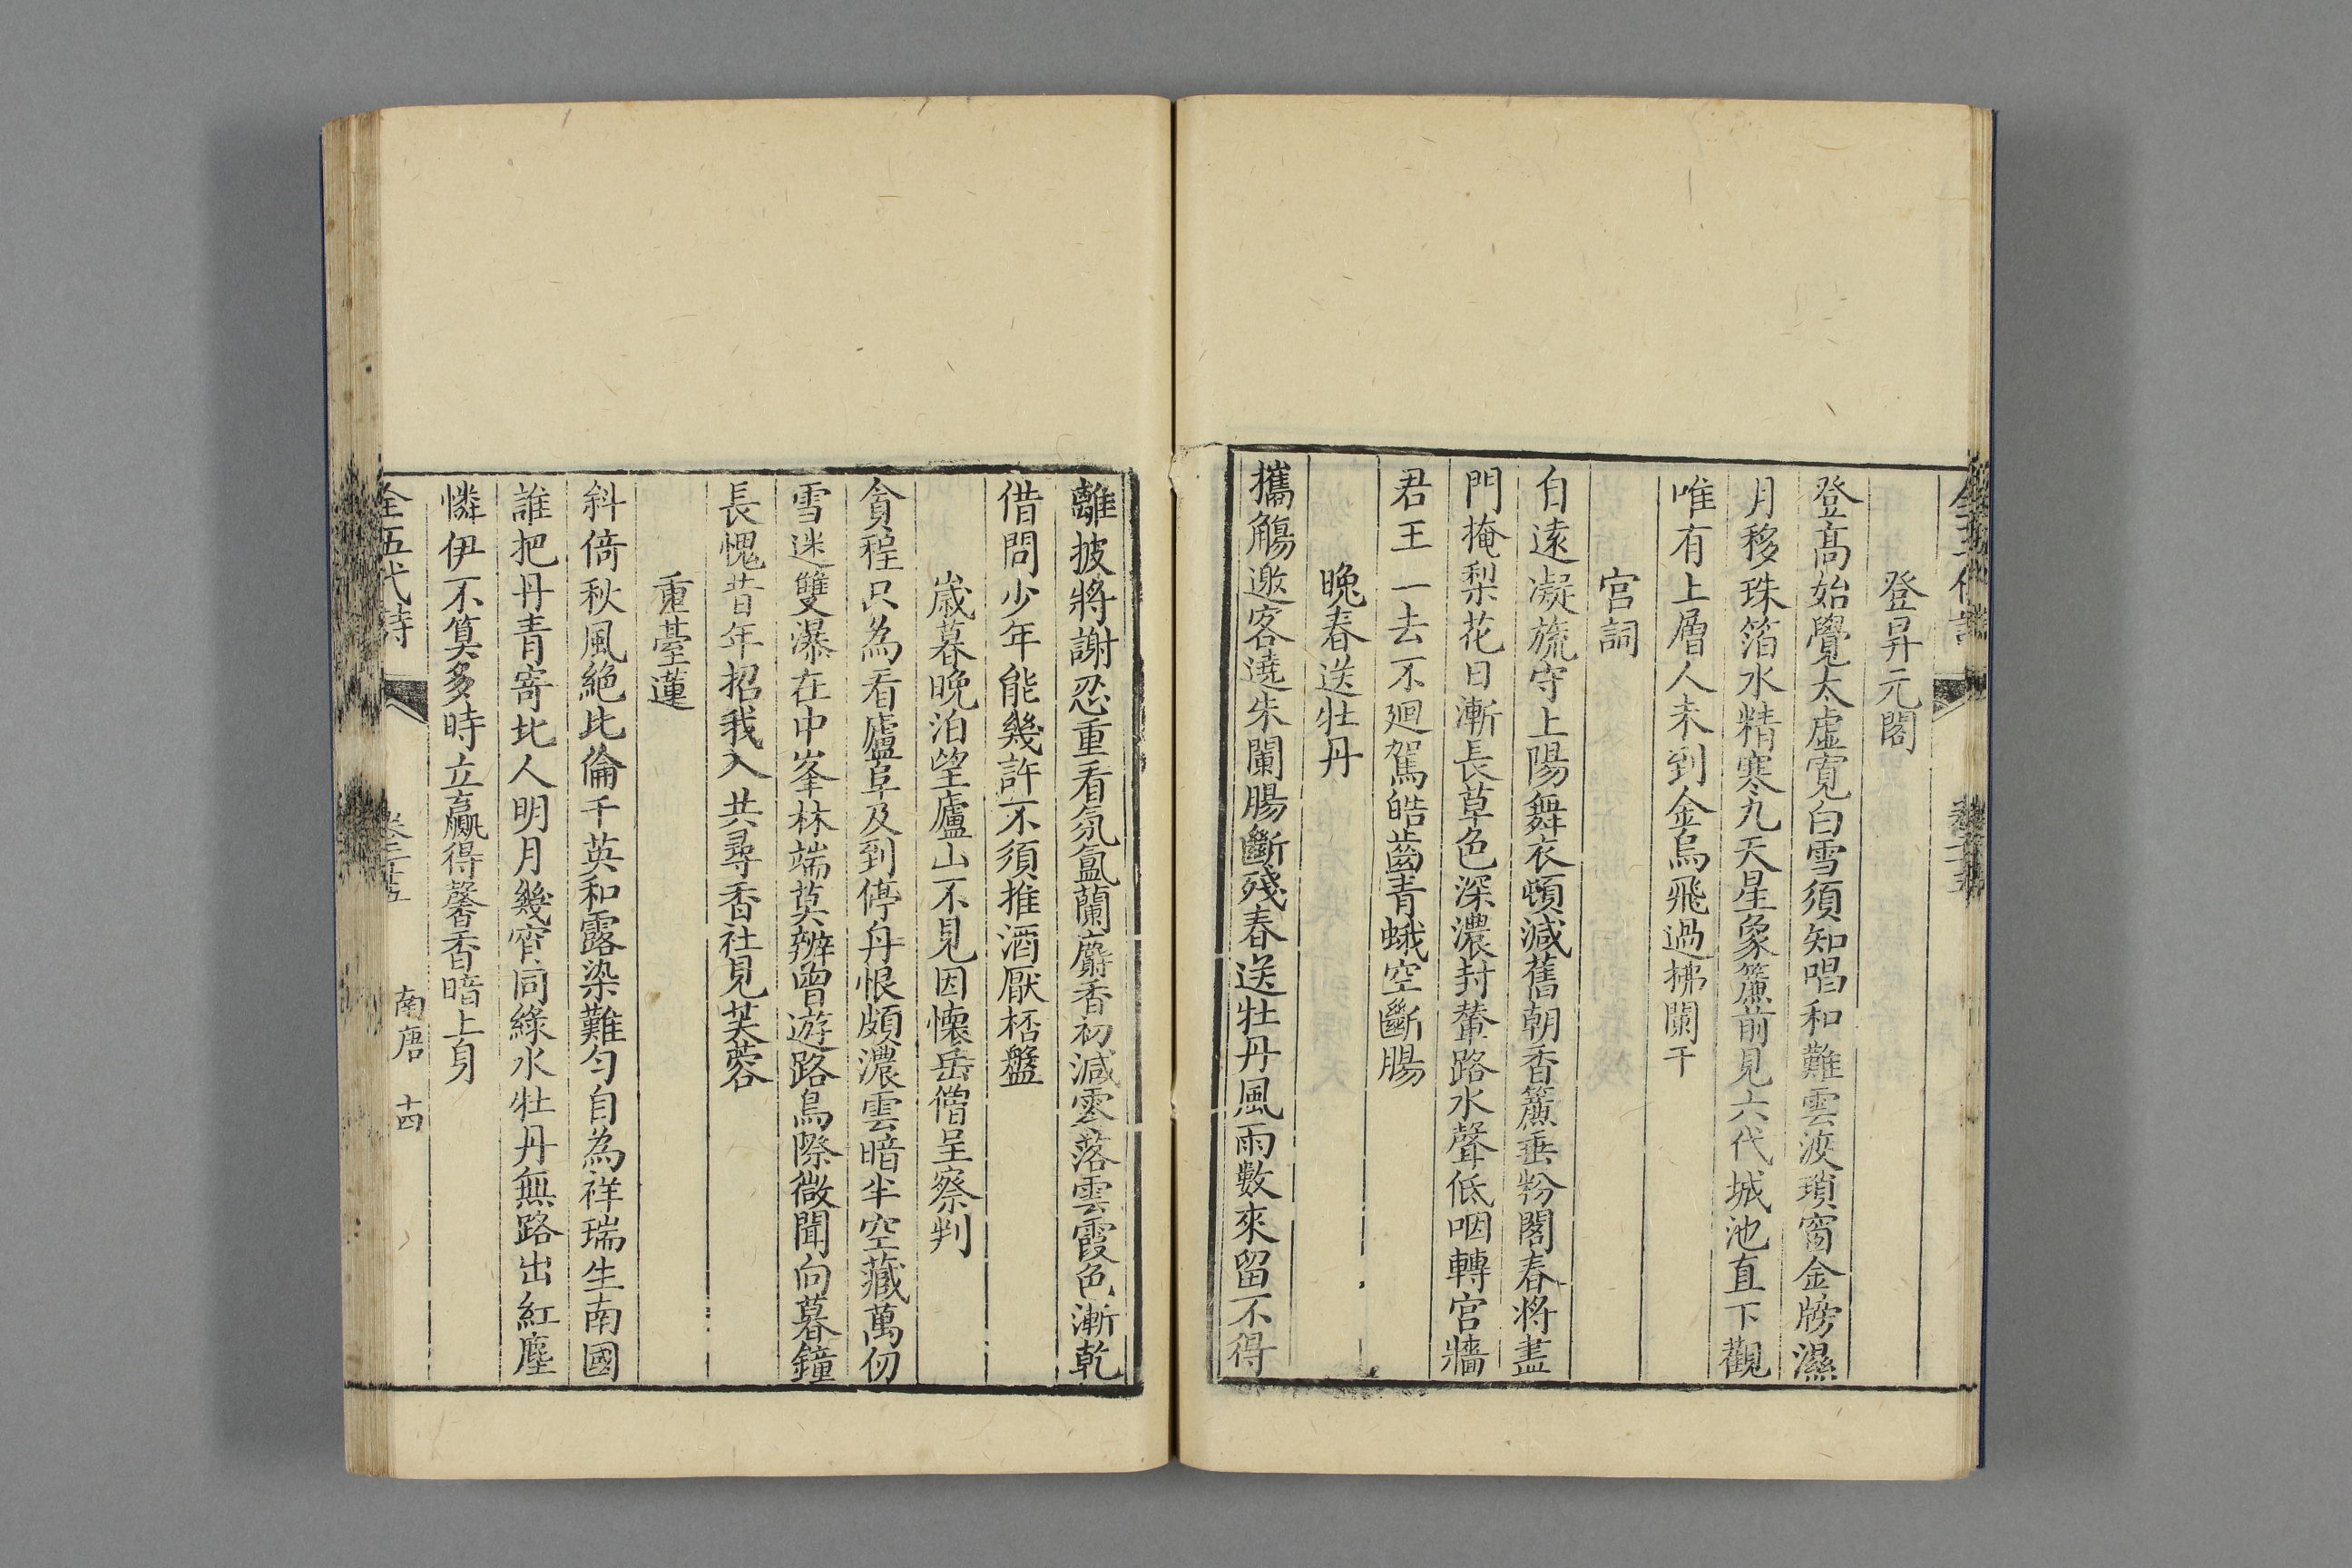 登昇元閣
登髙始覺太虛寛白雪須知唱和難雲渡瑣窗金牓濕
月移珠箔水精寒九天星象簾前見六代城池直下觀
唯有上層人未到金烏飛過拂闌干
宮詞
自遠凝旒守上陽舞衣頓減舊朝香簾垂粉閣春將盡
門掩梨花日漸長草色深濃封輦路水聲低咽轉宮牆
君王一去不迴駕皓齒青蛾空斷腸
晚春送牡丹
攜觴邀客遶朱闌腸斷殘春送牡丹風雨數來留不得
離披將謝忍重看氛氳蘭麝香初減零落雲霞色漸乾
借問少年能幾許不須推酒厭桮盤
歲暮晚泊望廬山不見因懷岳僧呈察判
貪程只為看廬阜及到停舟恨頗濃雲暗半空藏萬仞
雪迷雙瀑在中峯林端莫辨曾遊路鳥際微聞向暮鐘
長愧昔年招我入共尋香社見芙蓉
重臺蓮
斜倚秋風絶比倫千英和露染難勻自為祥瑞生南國
誰把丹青寄北人明月幾窄同綠水牡丹無路出紅塵
憐伊不算多時立贏得馨香暗上身
全五代詩 卷三十五 南唐 十四